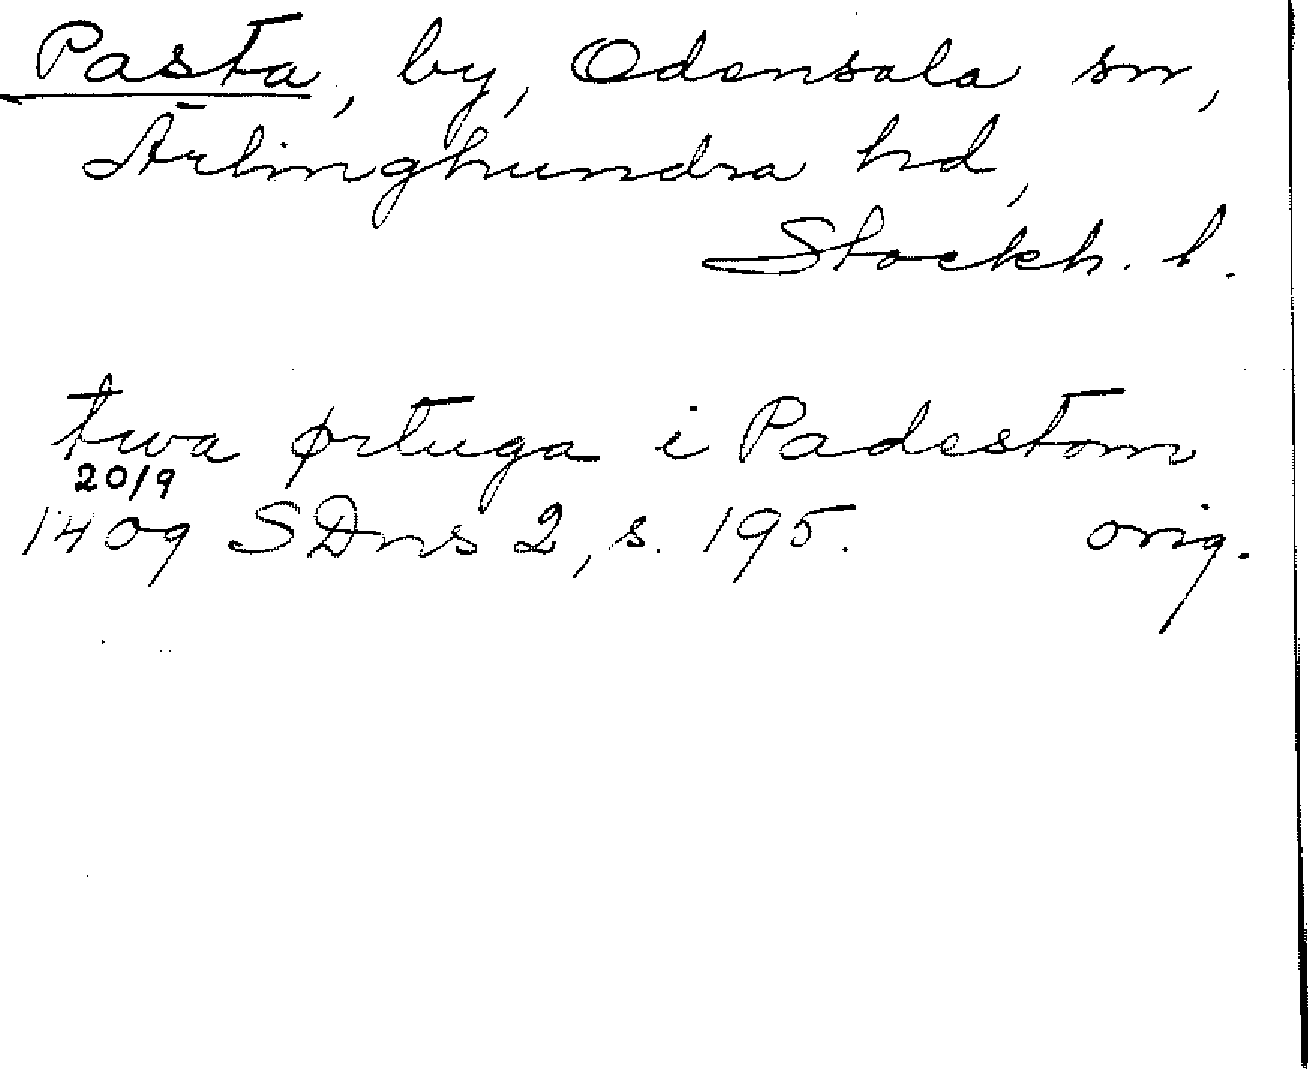 Pasta, by, Odensala sn,
Ärlinghundra hd,
Stockh. l.
twa ørtuga i Padestom
20/9
1409 SDns 2, s. 195. orig.